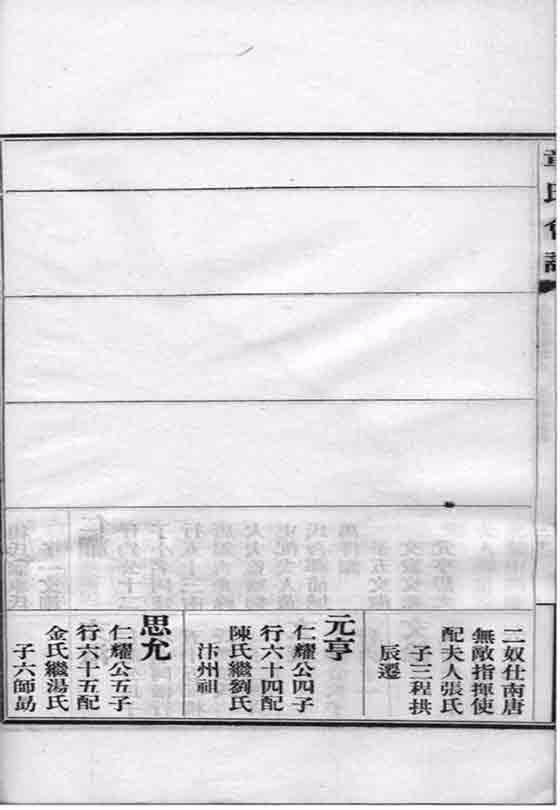 氏會譜
二奴仕南唐
無敵指揮使
配夫人張氏
子三程拱
辰遷
元亨
仁耀公四子
行六十四配
陳氏繼劉氏
汴州祖
思允
仁耀公五子
行六十五配
金氏繼湯氏
子六師勗